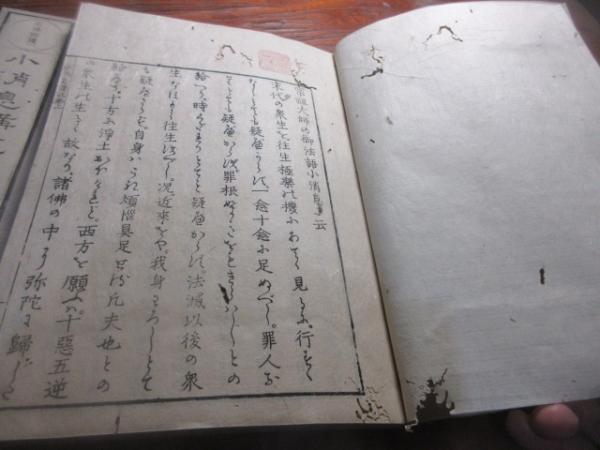 宗祖大師の御法語小消息ニ云
末代の衆生を往生極楽の機にあてゝ見るに。行すく
なしとても疑ふべからず。一念十念に足ぬべし。罪人な
りとても疑ふべからず。罪根ふかきをもきらはじとの
給へり。時くだれりとても疑ふべからず。法滅以後の衆
生なほもて往生すべし。况近来をや。我身わろしとて
も疑ふべからず。自身はこれ煩悩具足せる凡夫也との
給へり。十方に浄土おほけれど。西方を願ふは。十惡五逆
の衆生の生るゝ故なり。諸佛の中に弥陀に歸したて
小消息